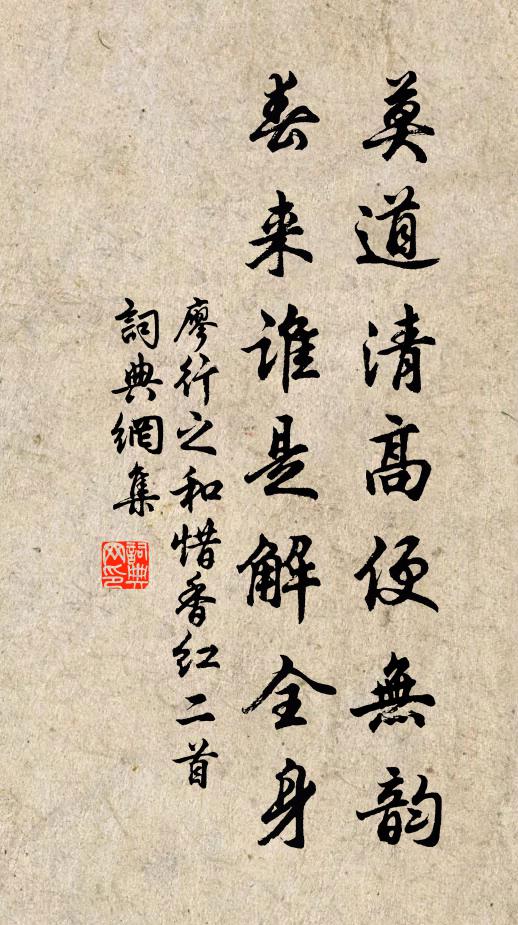 莫道清高便無韵
春来谁是解全身
廖行之和惜香红二首
詞典網集
詞典
网印